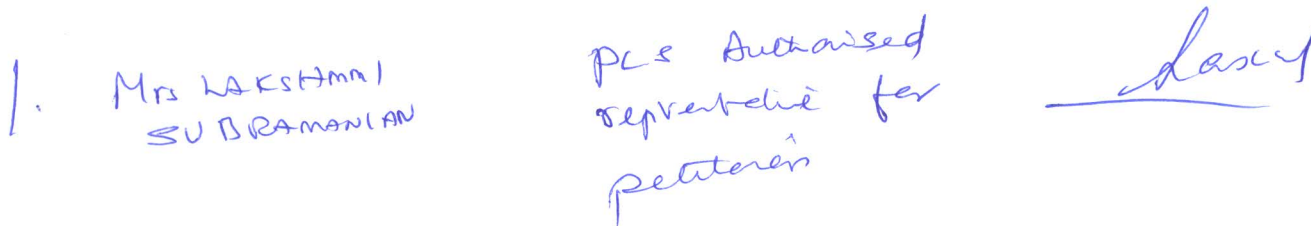 1. Mrs LAKSHMMI
SUBRAMANIAN
PCS Authorised
representative for
petitioners